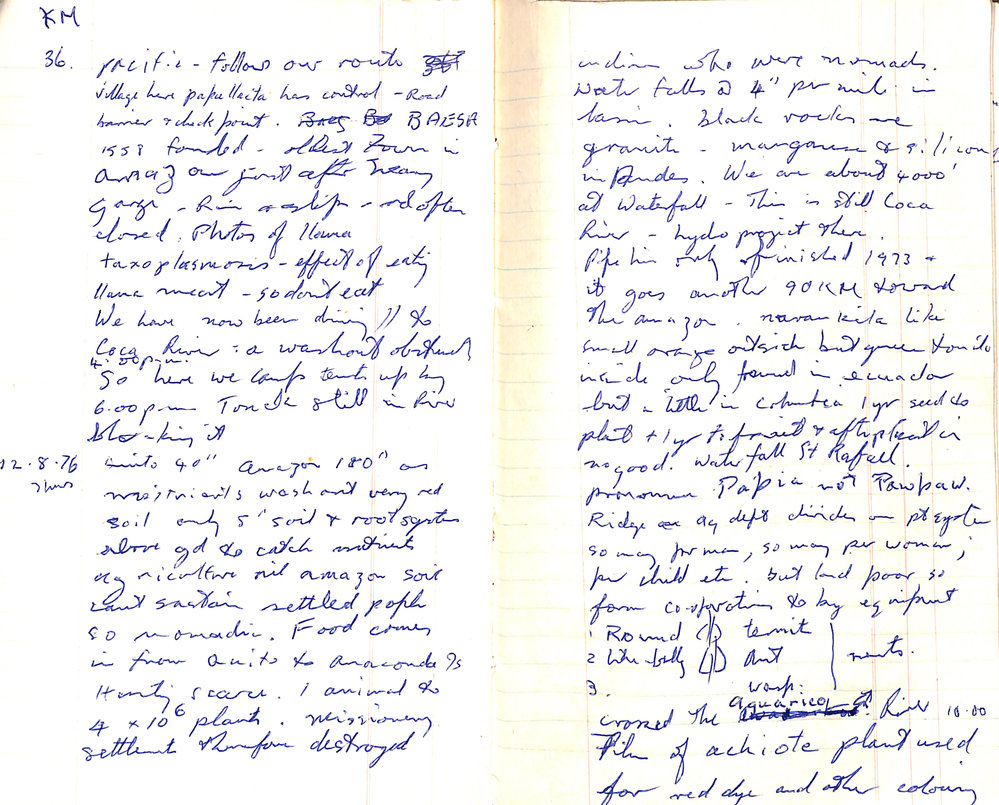 KM
36. pacific - follows our route
village here papallacta has control - Road
barrier & check point. BAESA
1559 founded - oldest Town in
amazon just after
Gorge - River & slips - rd often
closed. Photos of llama
taxoplasmosis - effect of eating
llama meat - so dont eat
We have now been driving // to
Coca River : a washout obstructs
4.00pm
So here we camp tents up by
6.00pm Truck still in River
blocking it
12.8.76 Quito 40" amazon 180" so
7hrs
nutrients wash out very red
soil only 5" soil & root system
above gd to catch nutrients
agriculture nil amazon soil
cant sustain settled people
so nomadic. Food comes
in from Quito to anaconda Is
Hunting scarce. 1 animal to
4 x 10⁶ plants. missionary
settlement therefore destroyed
indians who were nomads.
Water falls @ 4" per mile in
basin. Black rocks are
granite - manganese & silicous
in Andes. We are about 4000'
at Waterfall - This is still Coca
River - hydo project there.
Pipe line only finished 1973 &
it goes another 90KM toward
The amazon. narankila like
small orange outside but green tomato
inside only found in ecuador
but a little in Columbia 1yr seed to
plant + 1yr to fruit & after
no good. Waterfall St Rafael.
pronounce Papia not Pawpaw.
Ridge ag dept divides on pt system
so many per man, so many per woman,
per child etc. but land poor so
form cooperatives to buy equipment
1 Round termite
2 like belly ant nests.
3. wasp.
aquarico
crossed The River 10.00
Film of achiote plant used
for red dye and other colouring